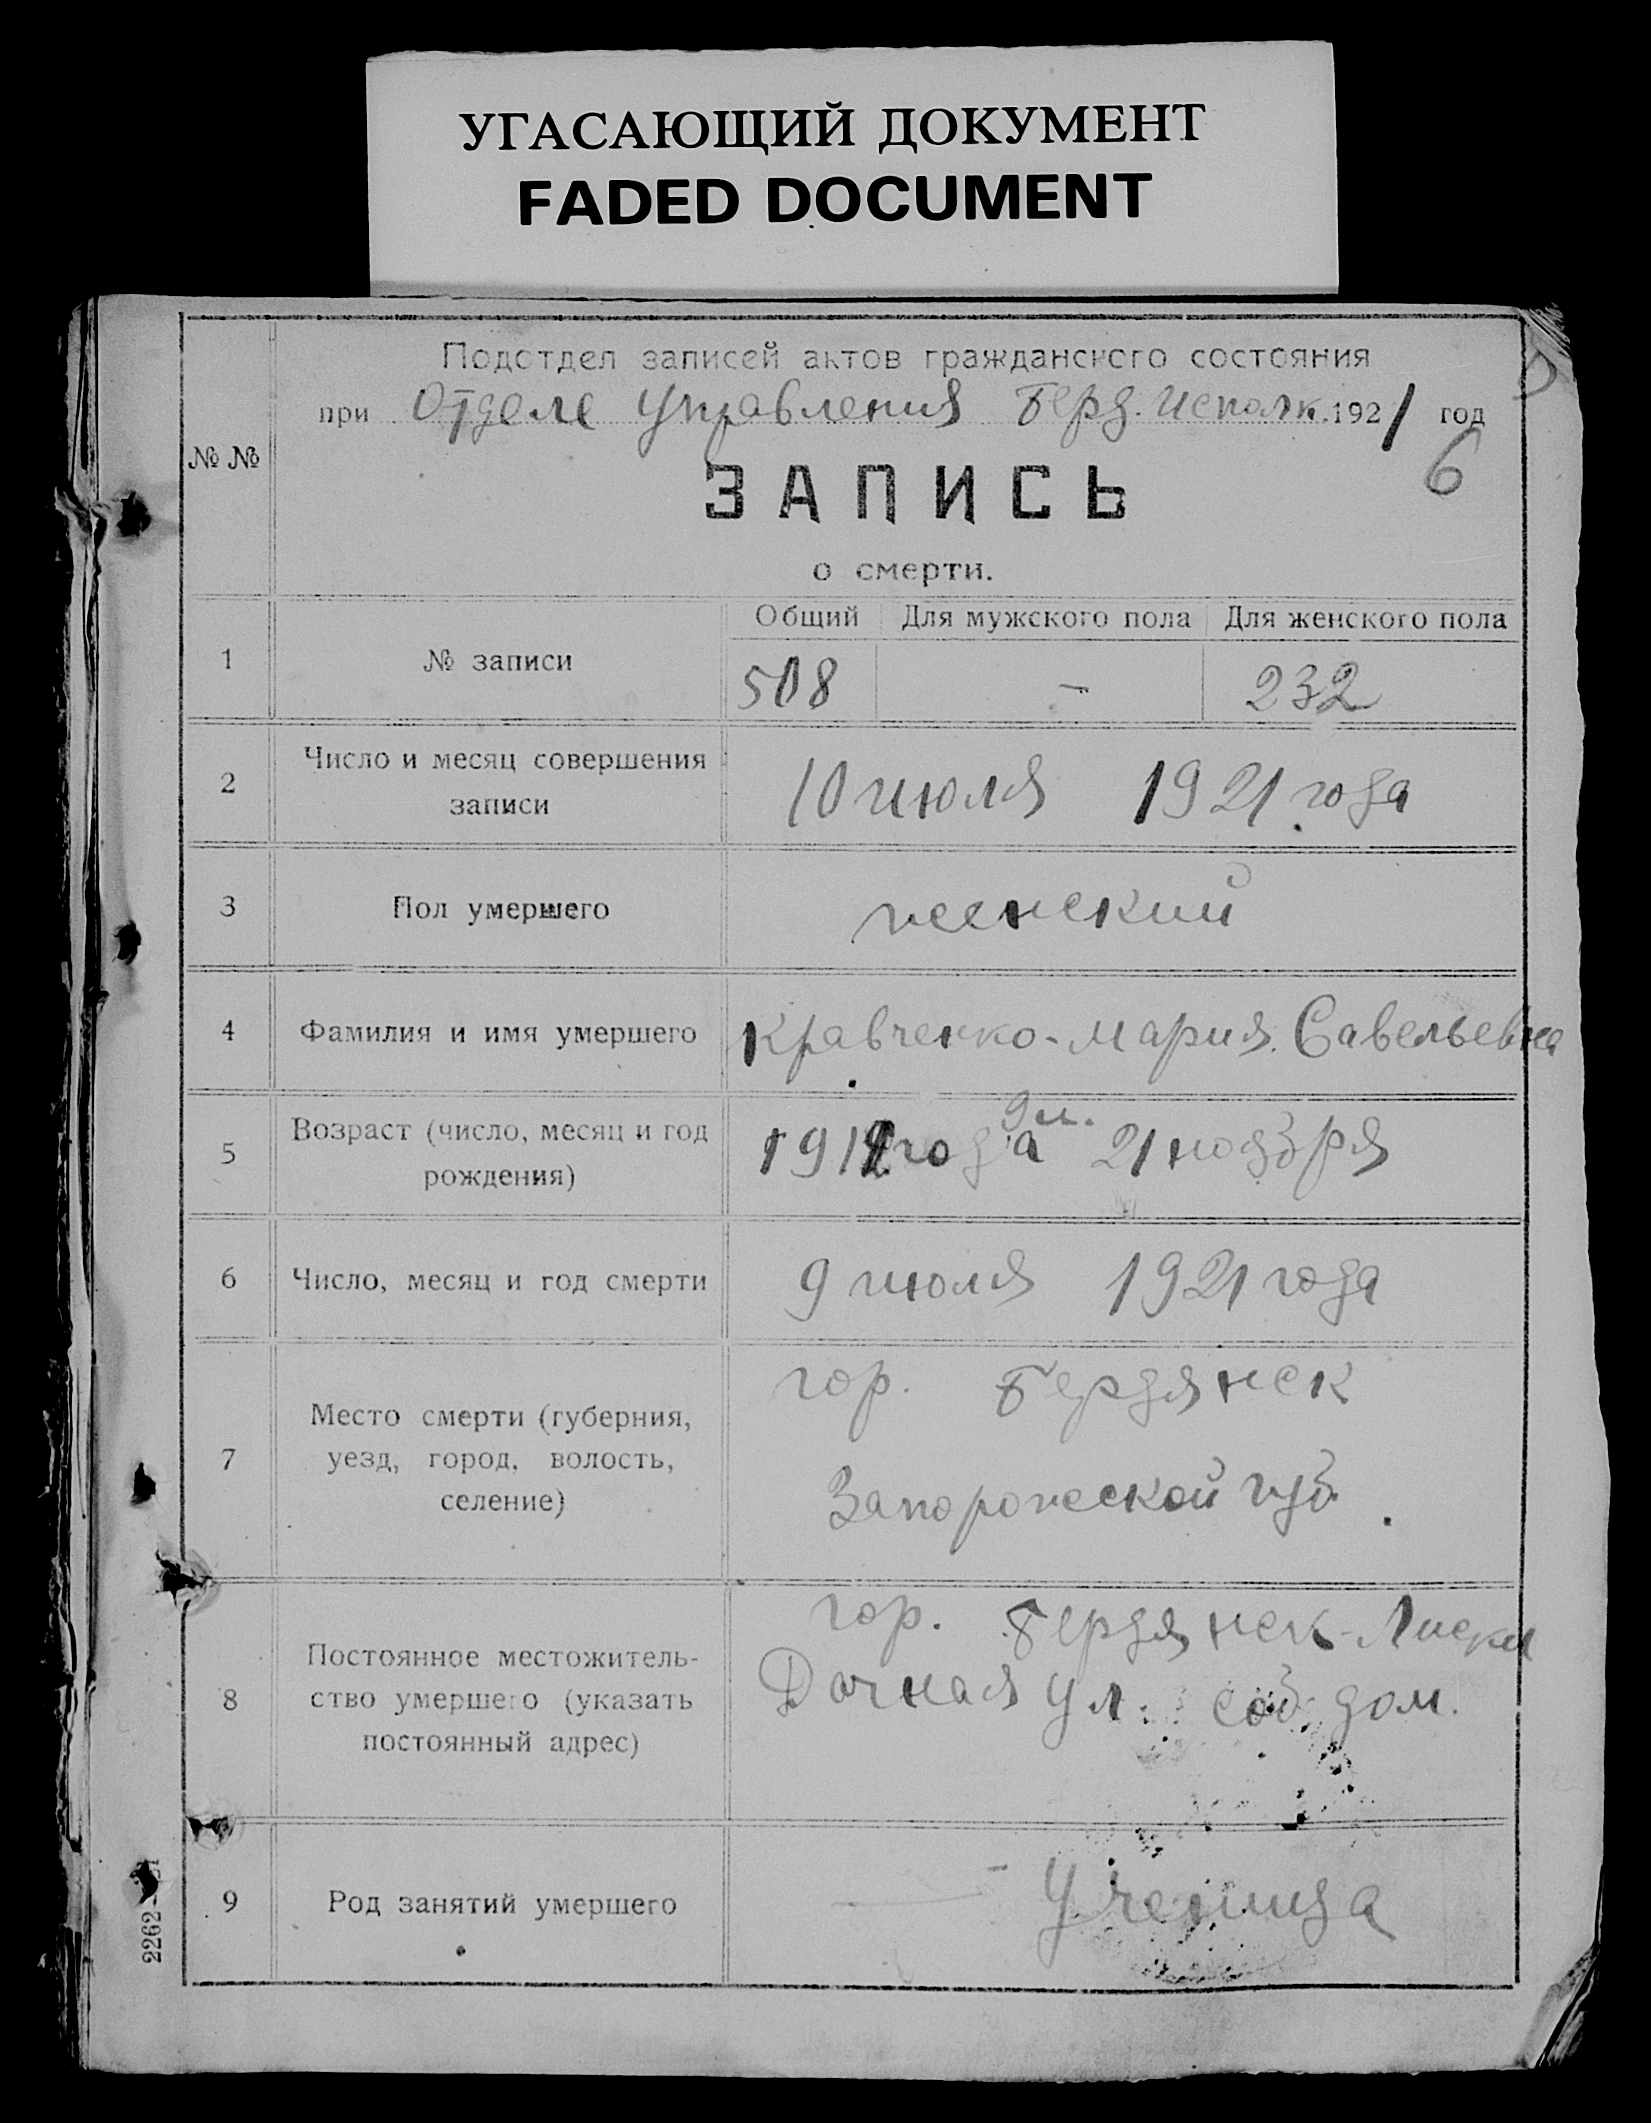 УГАСАЮЩИЙ ДОКУМЕНТ
FADED DOCUMENT
Подотдел записей актов гражданского состояния
при Отделе Управления Берд. Исполк. 1921 год
6
№ №
ЗАПИСЬ
о смерти.
Общий Для мужского пола Для женского пола
1 № записи 508 - 232
2 Число и месяц совершения
записи
10 июля 1921 года
3 Пол умершего женский
4 Фамилия и имя умершего Кравченко-Мария Савельевна
5 Возраст (число, месяц и год
рождения)
года 21 ноября
6 Число, месяц и год смерти 9 июля 1921 года
7 Место смерти (губерния,
уезд, город, волость,
селение)
гор. Бердянск
Запорожской губ.
8 Постоянное местожитель-
ство умершего (указать
постоянный адрес)
гор. Бердянск-Лиски
Дачная ул. соб. дом.
9 Род занятий умершего - Ученица
2262